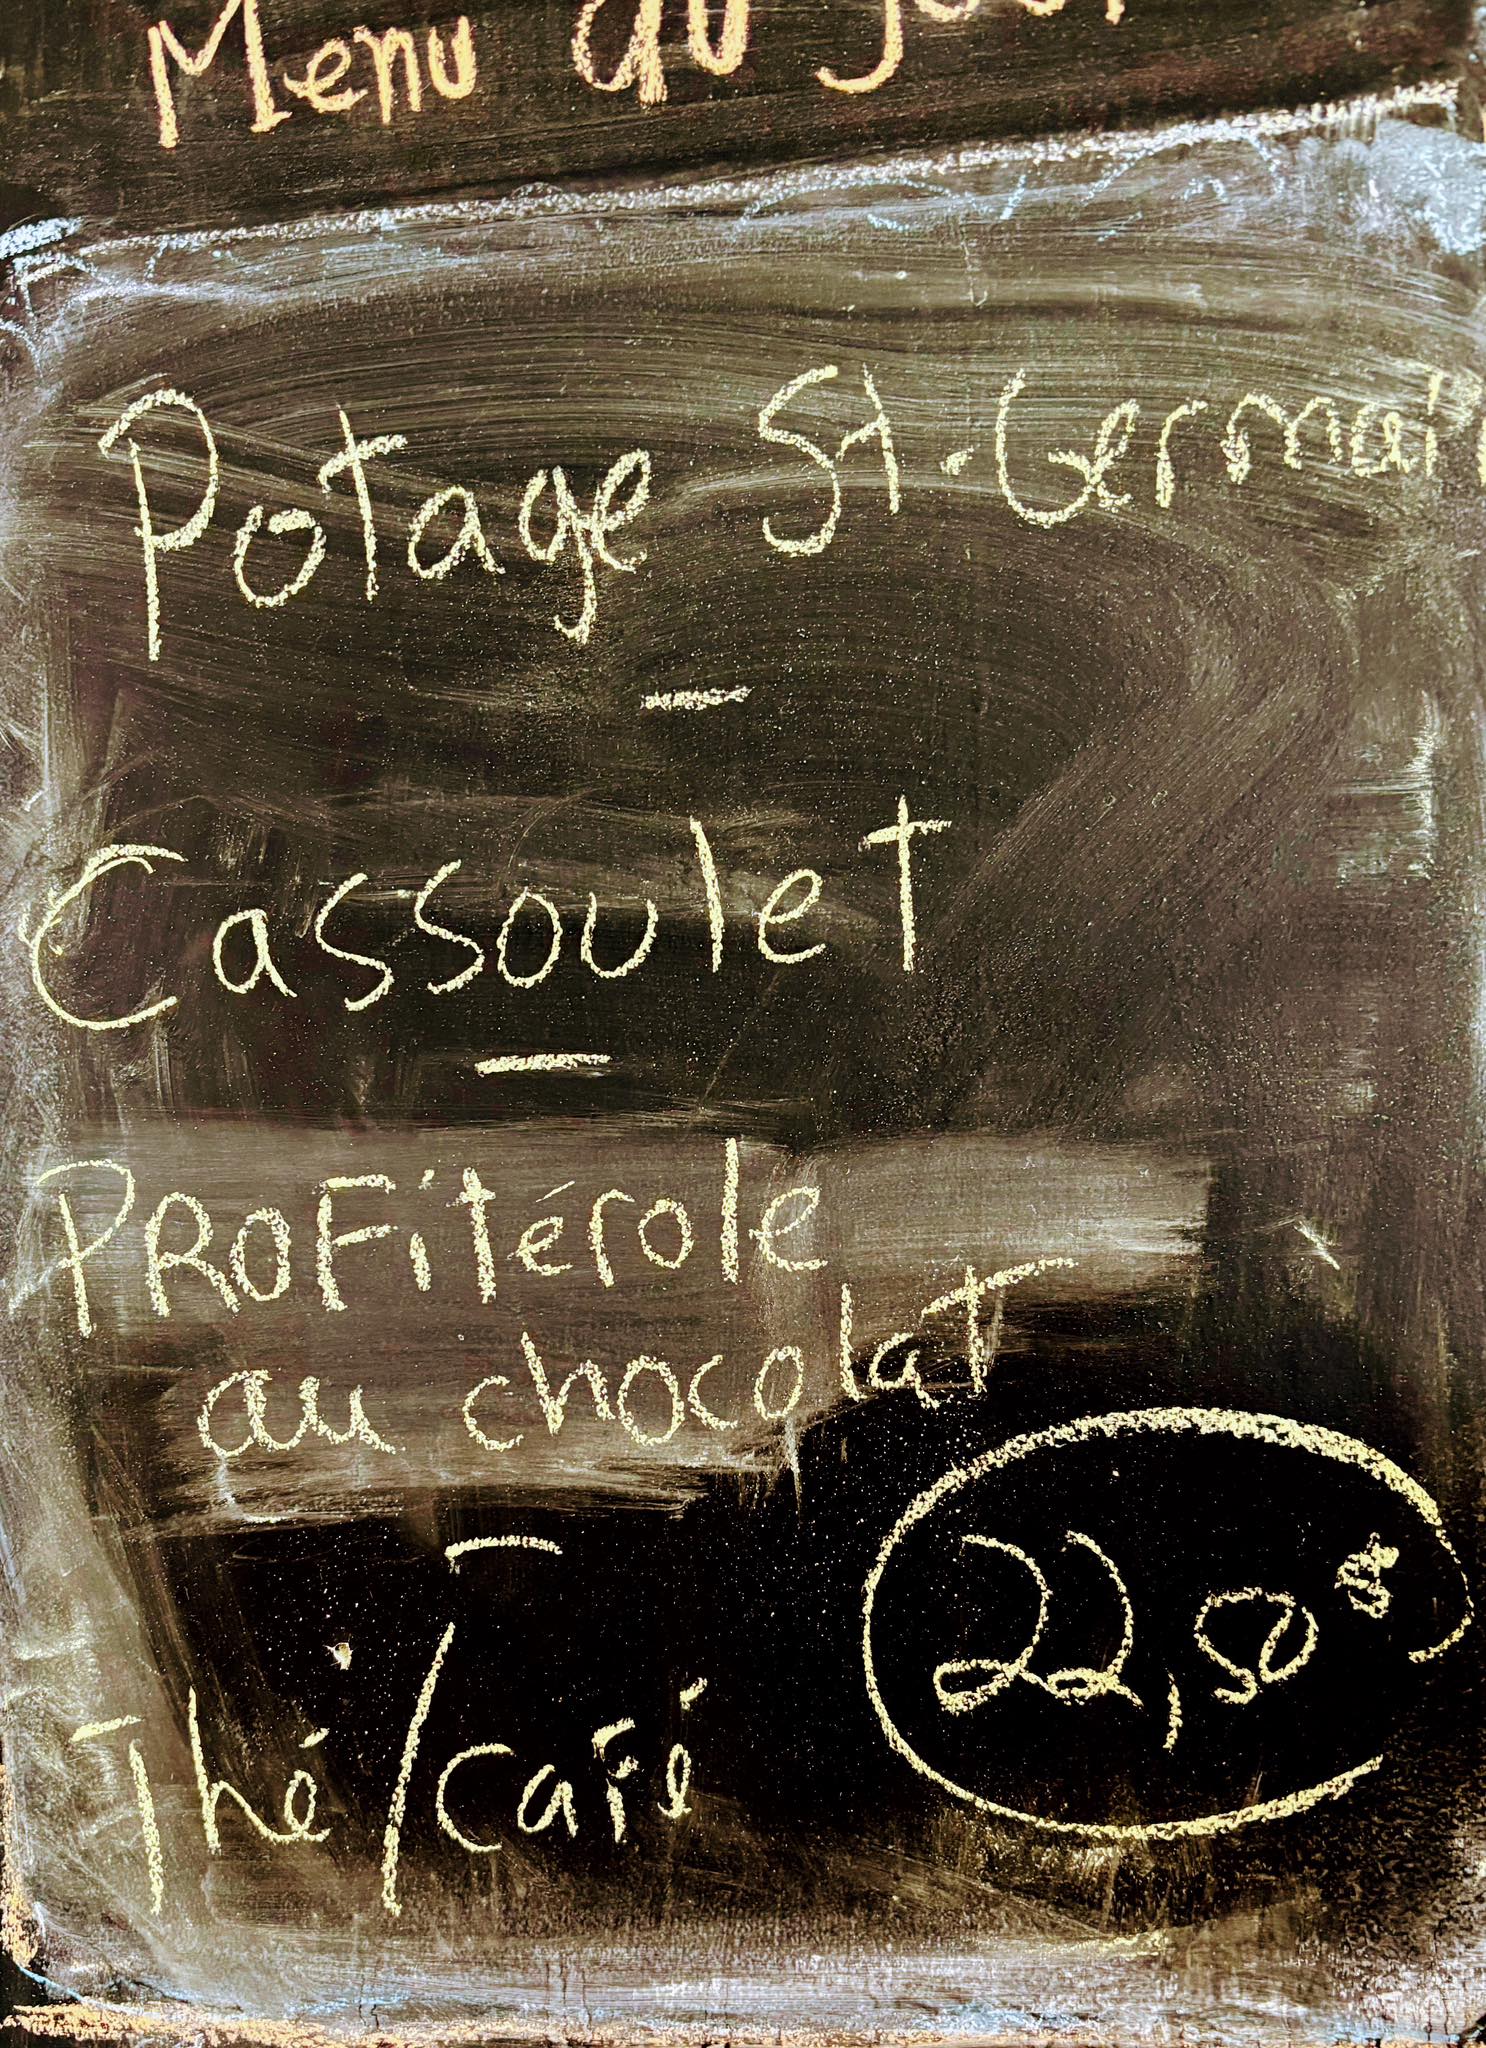 Menu du jour
Potage St-Germain
—
Cassoulet
—
PROFitérole
au chocolat
—
Thé/CaFé
22,50$